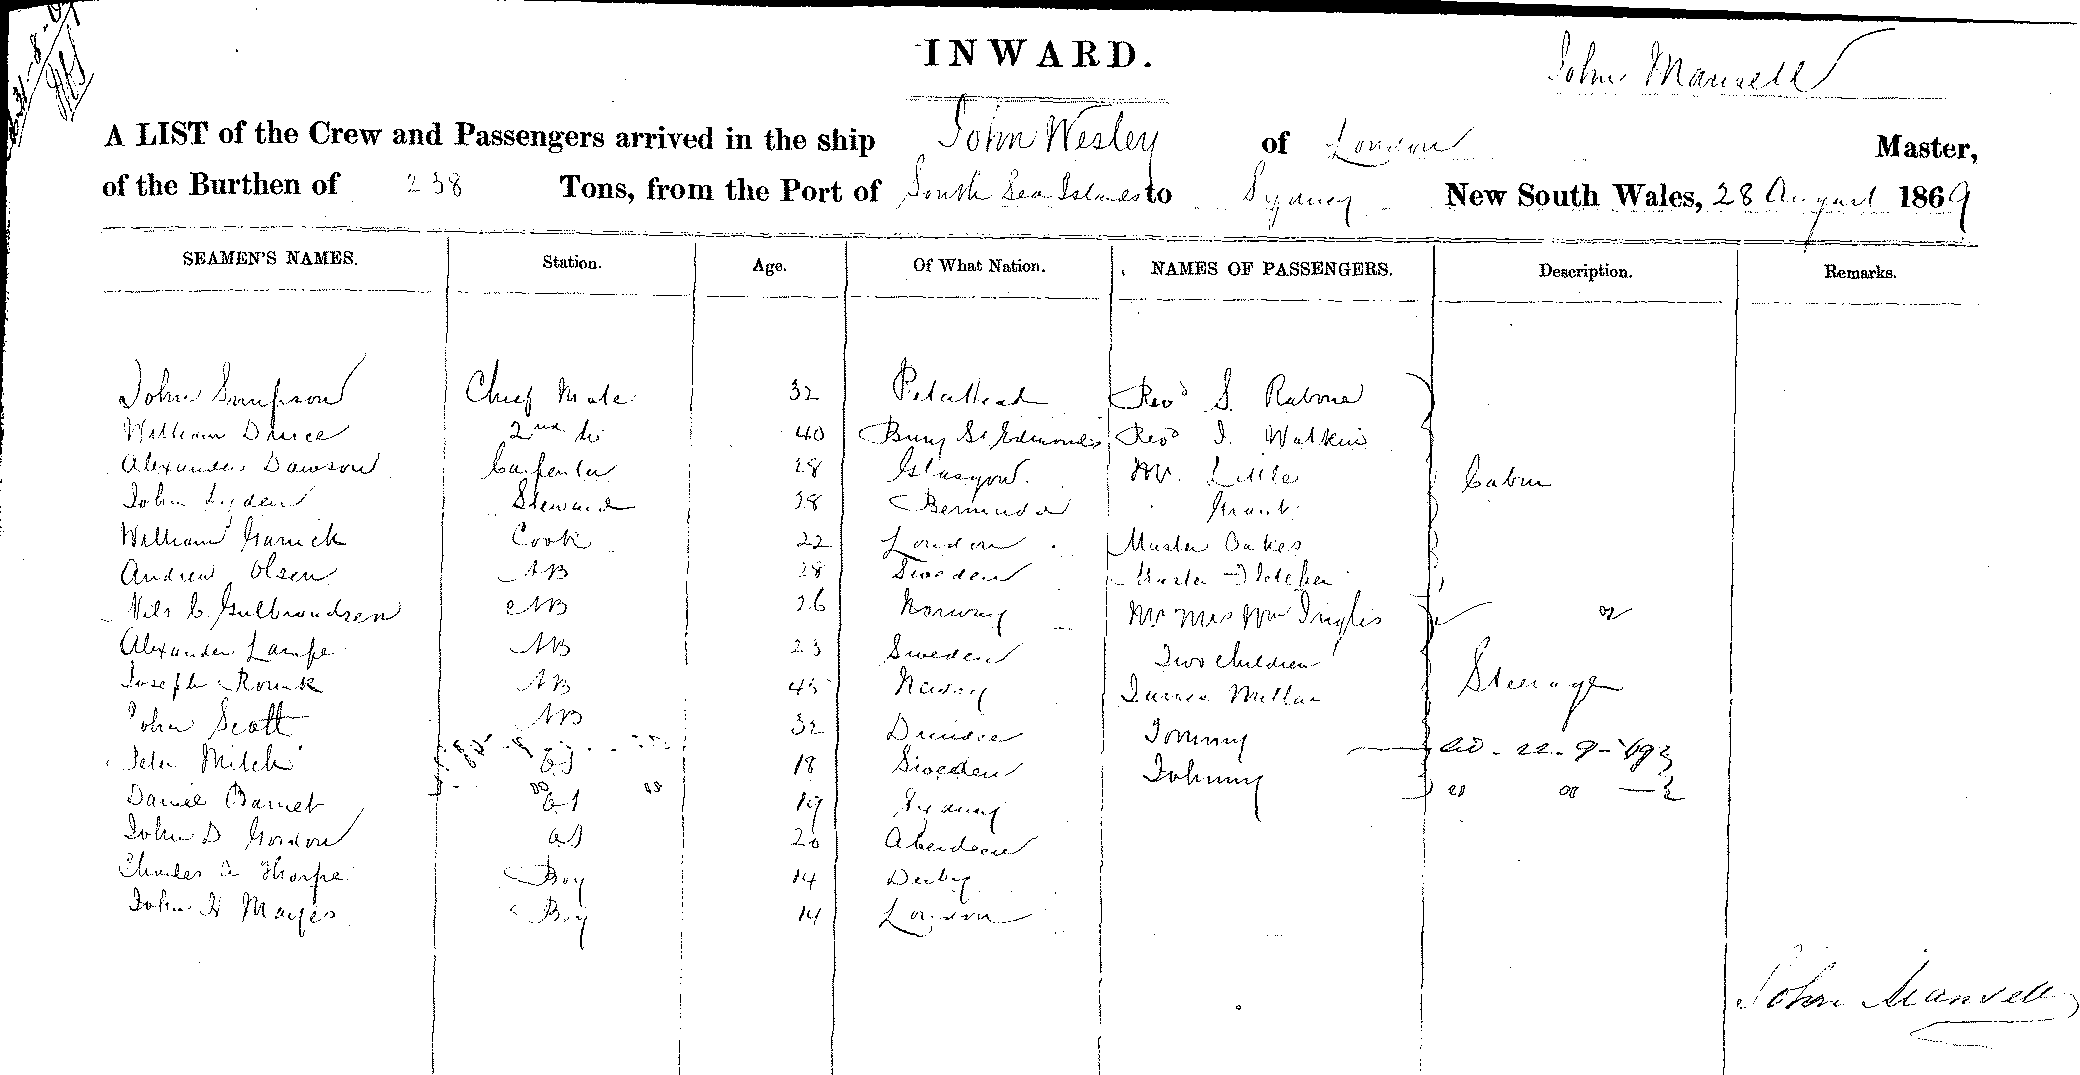 INWARD.
John Mansell
A LIST of the Crew and Passengers arrived in the ship John Wesley of London Master,
of the Burthen of 238 Tons, from the Port of South Sea Islands to Sydney New South Wales, 28 August 1869
SEAMEN'S NAMES. Station. Age. Of What Nation. NAMES OF PASSENGERS. Description. Remarks.
John Simpson Chief Mate 32 Peterhead Revd S. Rabone
William Druce 2nd do 40 Bury St Edmonds Revd J. Watkin
Alexander Dawson Carpenter 28 Glasgow Mr. Little Cabin
John Lyden Steward 28 Bermuda Grant
William Garrick Cook 22 London Master Oakes
Andrew Olsen AB 28 Sweden Master Fletcher
Nils C Gulbrandsen AB 26 Norway Mr Mrs Wm Inglis
Alexander Lampe AB 23 Sweden Two Children
Joseph AB 45 Norway James Millar Steerage
John Scott AB 32 Dundee Tommy
Peter Milch OS 18 Sweden Johnny
Daniel Barnet OS 19 Sydney
John D Gordon OS 20 Aberdeen
Charles A Thorpe Boy 14 Derby
John H Mayes Boy 14 London
John Mansell